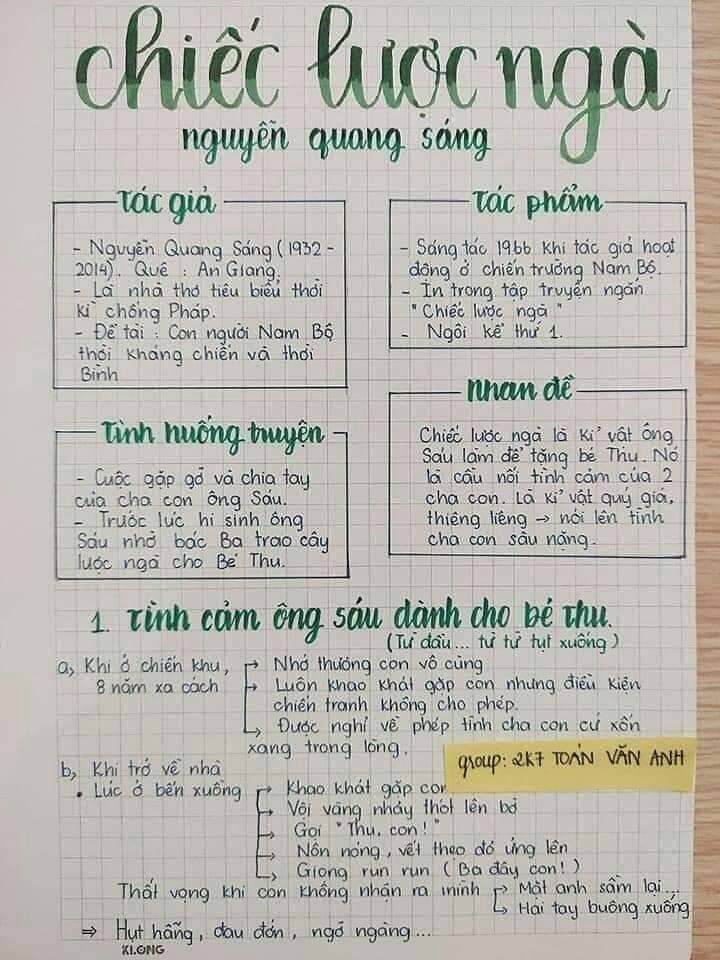 chiếc lược ngà
nguyễn quang sáng
Tác giả
- Nguyễn Quang Sáng (1932 -
2014). Quê : An Giang.
- Là nhà thơ tiêu biểu thời
kì chống Pháp.
- Đề tài : Con người Nam Bộ
thời kháng chiến và thời
Bình
Tác phẩm
- Sáng tác 1966 khi tác giả hoạt
động ở chiến trường Nam Bộ.
- In trong tập truyện ngắn
"Chiếc lược ngà"
- Ngôi kể thứ 1.
Tình huống truyện
- Cuộc gặp gỡ và chia tay
của cha con ông Sáu.
- Trước lúc hi sinh ông
Sáu nhờ bác Ba trao cây
lược ngà cho Bé Thu.
Nhan đề
Chiếc lược ngà là kỉ vật ông
Sáu làm để tặng bé Thu. Nó
là cầu nối tình cảm của 2
cha con. Là kỉ vật quý giá,
thiêng liêng → nói lên tình
cha con sâu nặng.
1. Tình cảm ông sáu dành cho bé thu.
(Từ đầu... từ từ tụt xuống)
a, Khi ở chiến khu,
8 năm xa cách
→ Nhớ thương con vô cùng
→ Luôn khao khát gặp con nhưng điều kiện
chiến tranh không cho phép.
→ Được nghỉ về phép tình cha con cứ xốn
xang trong lòng.
group: 2K7 TOÁN VĂN ANH
b, Khi trở về nhà
• Lúc ở bến xuồng
→ Khao khát gặp con
→ Vội vàng nhảy thót lên bờ
→ Gọi "Thu, con!"
→ Nôn nóng, vết thẹo đỏ ửng lên
→ Giọng run run (Ba đây con!)
Thất vọng khi con không nhận ra mình → Mặt anh sầm lại...
→ Hai tay buông xuống
⇒ Hụt hẫng, đau đớn, ngỡ ngàng...
KI.ONG